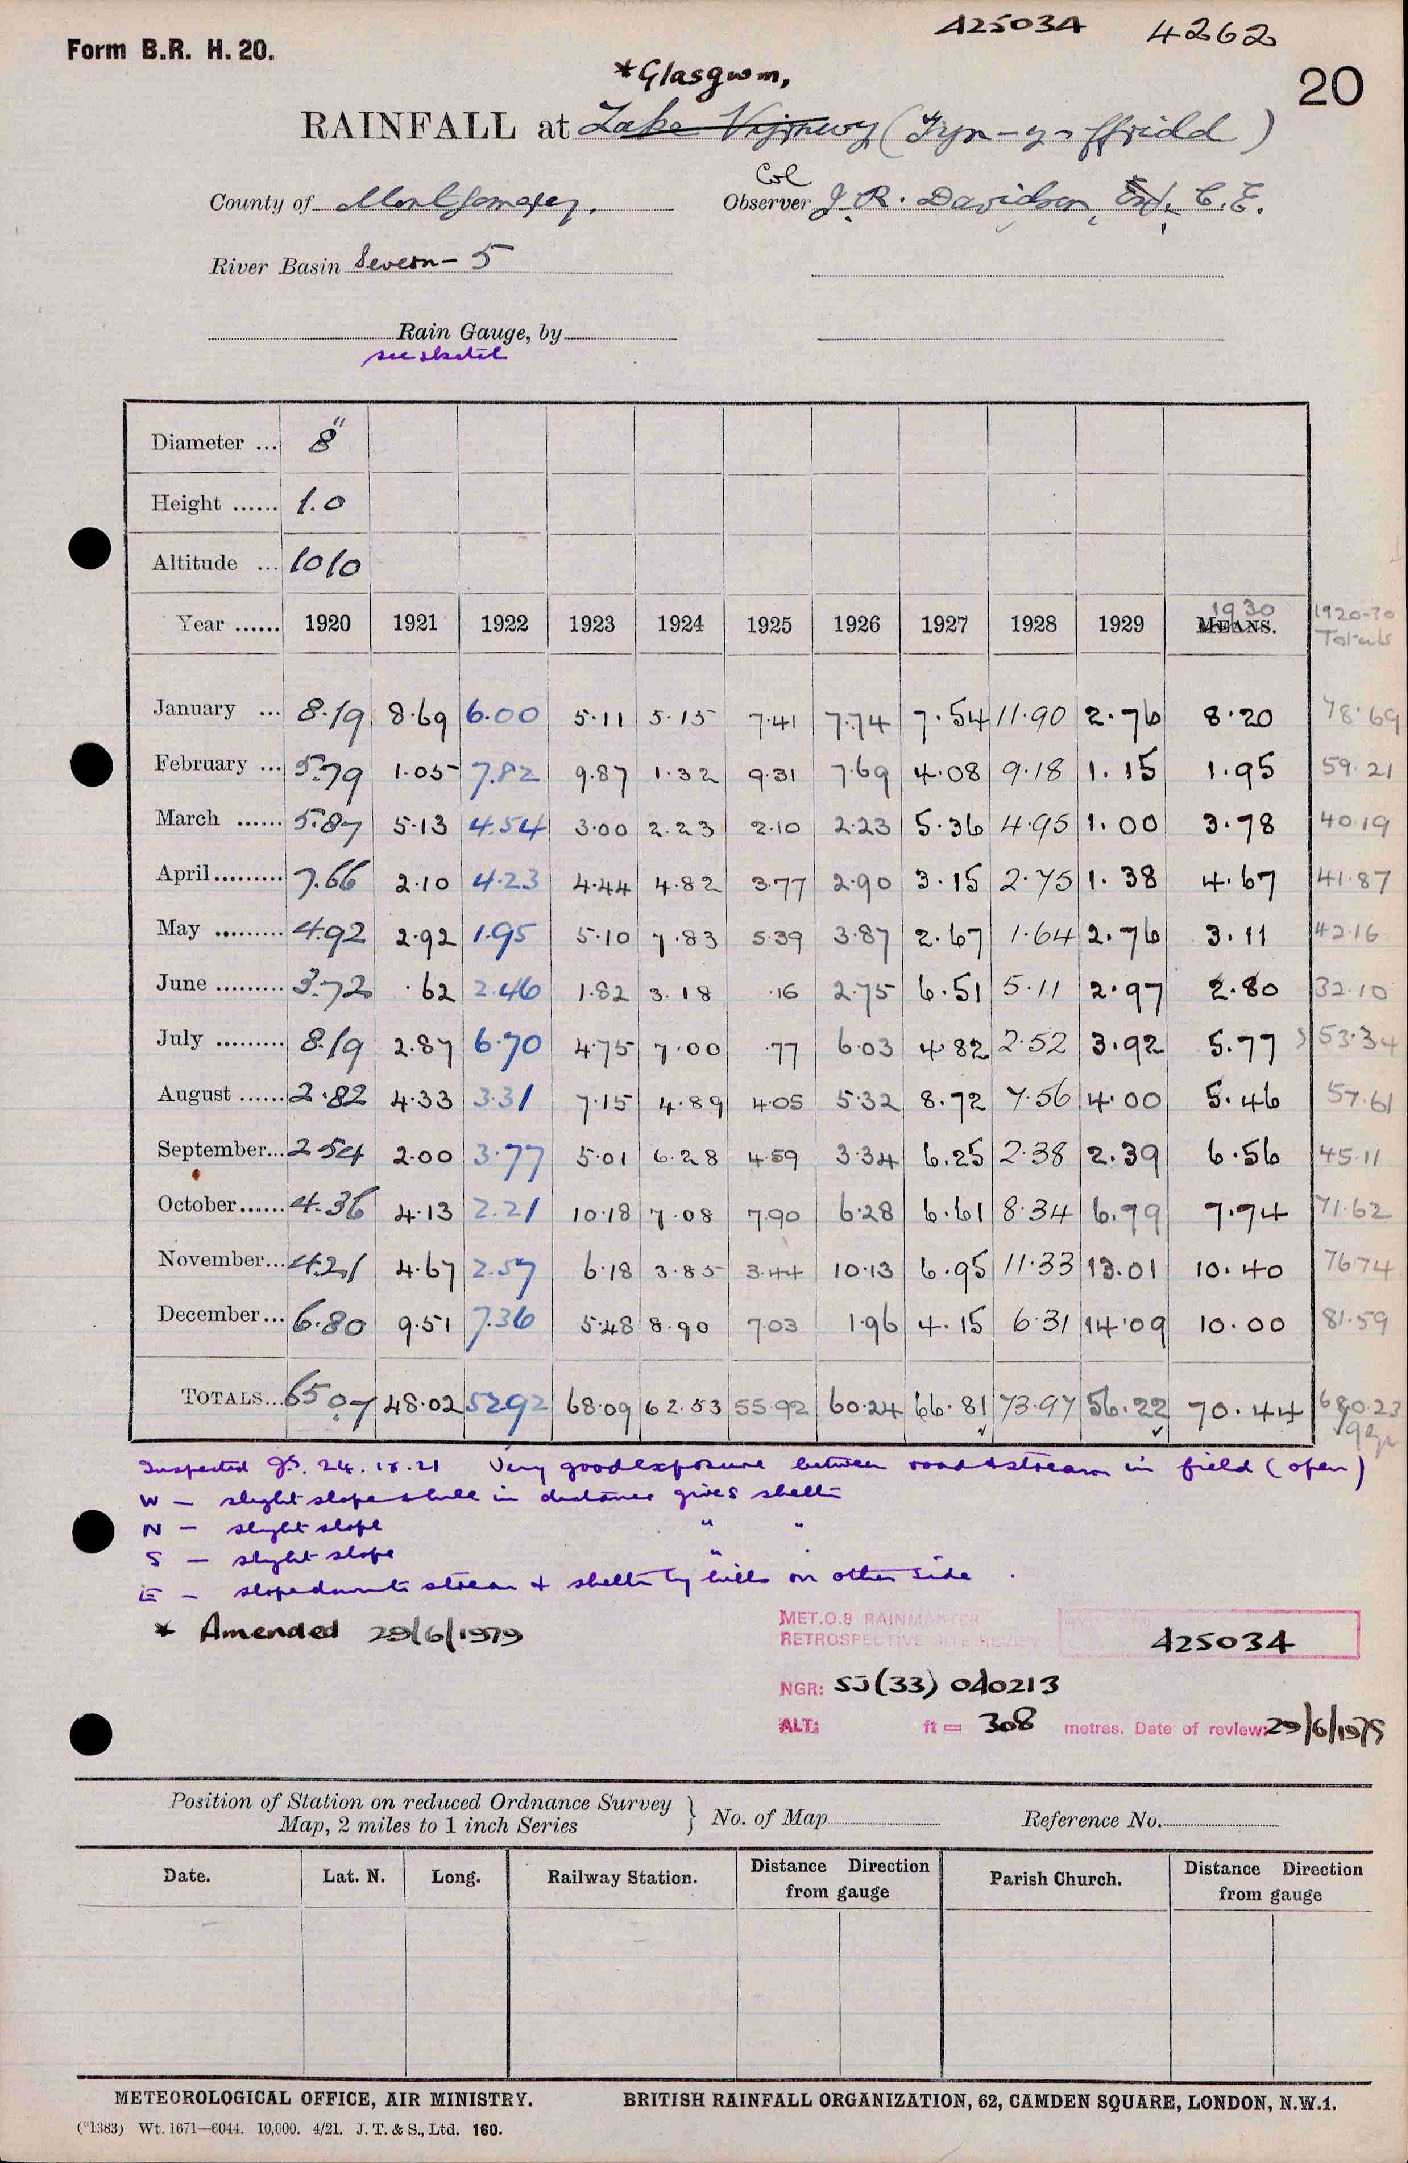 425034 4262
Form B.R. H. 20.
20
*Glasgwm,
RAINFALL at Lake Vyrnwy (Tyn-y-ffridd)
Col
County of Montgomery. Observer J. R. Davidson, Esq., C.E.
River Basin Severn - 5
Rain Gauge, by
see sketch
Diameter ... 8"
Height ...... 1.0
Altitude ... 1010
1930 1920-30
Year ...... 1920 1921 1922 1923 1924 1925 1926 1927 1928 1929 MEANS. Totals
January ... 8.19 8.69 6.00 5.11 5.15 7.41 7.74 7.54 11.90 2.76 8.20 78.69
February ... 5.79 1.05 7.82 9.87 1.32 9.31 7.69 4.08 9.18 1.15 1.95 59.21
March ...... 5.87 5.13 4.54 3.00 2.23 2.10 2.23 5.36 4.95 1.00 3.78 40.19
April ......... 7.66 2.10 4.23 4.44 4.82 3.77 2.90 3.15 2.75 1.38 4.67 41.87
May ......... 4.92 2.92 1.95 5.10 7.83 5.39 3.87 2.67 1.64 2.76 3.11 42.16
June ......... 3.72 .62 2.46 1.82 3.18 .16 2.75 6.51 5.11 2.97 2.80 32.10
July ......... 8.19 2.87 6.70 4.75 7.00 .77 6.03 4.82 2.52 3.92 5.77 53.34
August ...... 2.82 4.33 3.31 7.15 4.89 4.05 5.32 8.72 7.56 4.00 5.46 57.61
September... 2.54 2.00 3.77 5.01 6.28 4.59 3.34 6.25 2.38 2.39 6.56 45.11
October...... 4.36 4.13 2.21 10.18 7.08 7.90 6.28 6.61 8.34 6.79 7.74 71.62
November... 4.21 4.67 2.57 6.18 3.85 3.44 10.13 6.95 11.33 13.01 10.40 76.74
December... 6.80 9.51 7.36 5.48 8.90 7.03 1.96 4.15 6.31 14.09 10.00 81.59
TOTALS... 65.07 48.02 52.92 68.09 62.53 55.92 60.24 66.81 73.97 56.22 70.44 680.23
Inspected Very good exposure between road & stream in field (open)
W - slight slope & hill in distance gives shelter
N - slight slope " "
S - slight slope "
E - slope down to stream & shelter by hills on other side.
* Amended 29/6/1979
MET.O.8 RAINMASTER
RETROSPECTIVE SITE REVIEW 425034
NGR: SJ(33) 040213
ALT: ft = 308 metres. Date of review: 29/6/1979
Position of Station on reduced Ordnance Survey
Map, 2 miles to 1 inch Series } No. of Map Reference No.
Date. Lat. N. Long. Railway Station. Distance Direction from gauge Parish Church. Distance Direction from gauge
METEOROLOGICAL OFFICE, AIR MINISTRY. BRITISH RAINFALL ORGANIZATION, 62, CAMDEN SQUARE, LONDON, N.W.1.
(*1383) Wt. 1671—6044. 10,000. 4/21. J. T. & S., Ltd. 160.